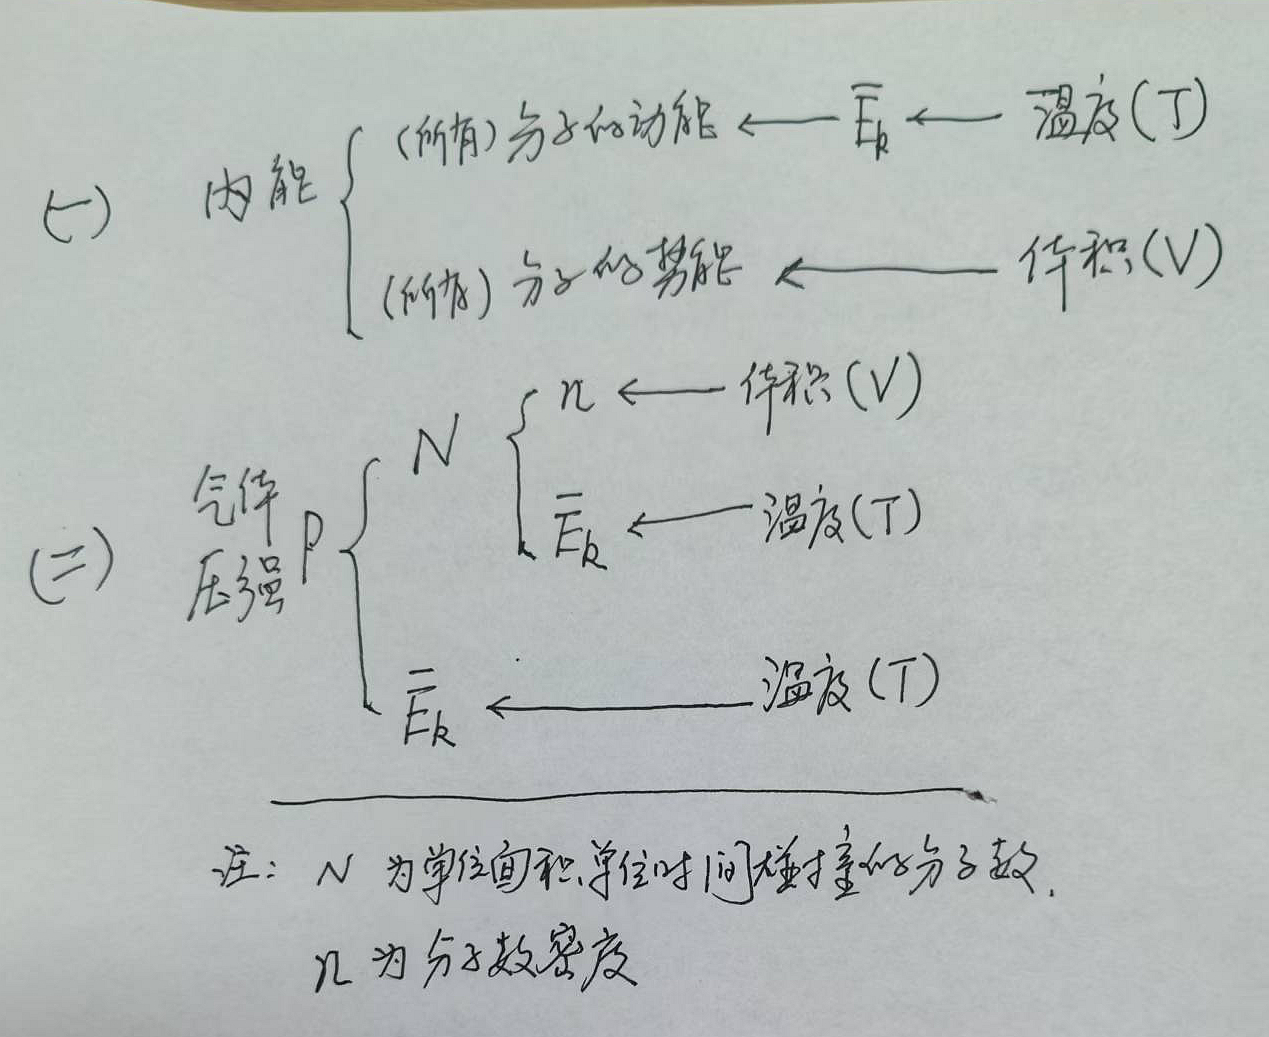 (一) 内能 { (所有)分子的动能 ← Ēk ← 温度(T)
(所有)分子的势能 ← 体积(V)
(二) 气体压强 P { N { n ← 体积(V)
Ēk ← 温度(T)
Ēk ← 温度(T)
注: N 为单位面积、单位时间碰撞的分子数.
n 为分子数密度